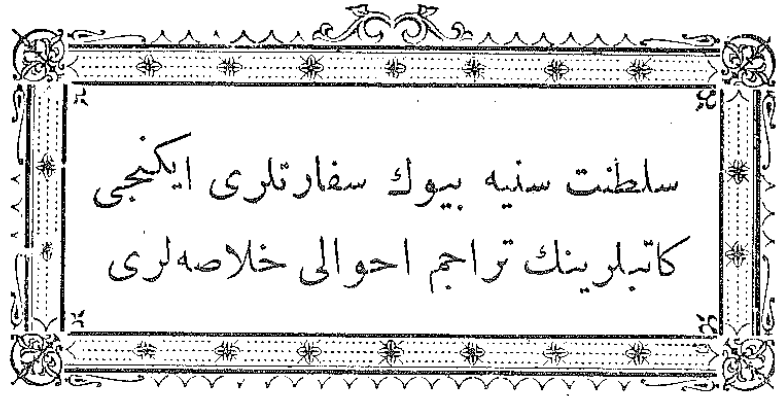 سلطنت سنیه بیوك سفارتلری ایکنجی
کاتبلرینك تراجم احوالی خلاصه‌لری